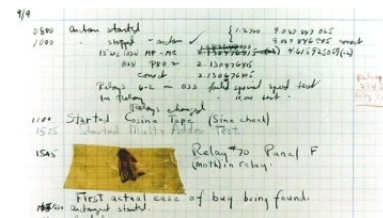 9/9
0800 antan started
1000 " stopped - antan ✓ { 1.2700 9.037 847 025
9.037 846 995 correct
13" uc (032) MP-MC 2.130476415 4.615925059(-2)
(033) PRO 2 2.130476415
correct 2.130676415
Relays 6-2 in 033 failed special speed test
in relay " test.
Relays changed
1100 Started Cosine Tape (Sine check)
1525 Started Multi Adder Test.
1545 Relay #70 Panel F
(moth) in relay.
First actual case of bug being found.
antangent started.